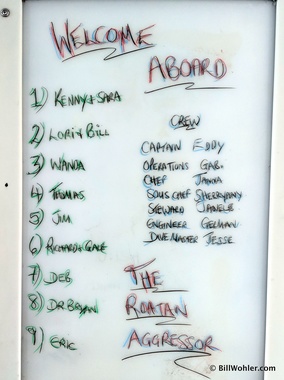 WELCOME
ABOARD
1) KENNY & SARA
2) LORI & BILL
3) WANDA
4) THOMAS
5) JIM
6) RICHARD & GALE
7) DEB
8) DR BRYAN
9) ERIC
CREW
CAPTAIN EDDY
OPERATIONS GAB.
CHEF
SOUS CHEF
STEWARD
ENGINEER GERMAN
DIVE MASTER JESSE
THE
ROATAN
AGGRESSOR
© BillWohler.com